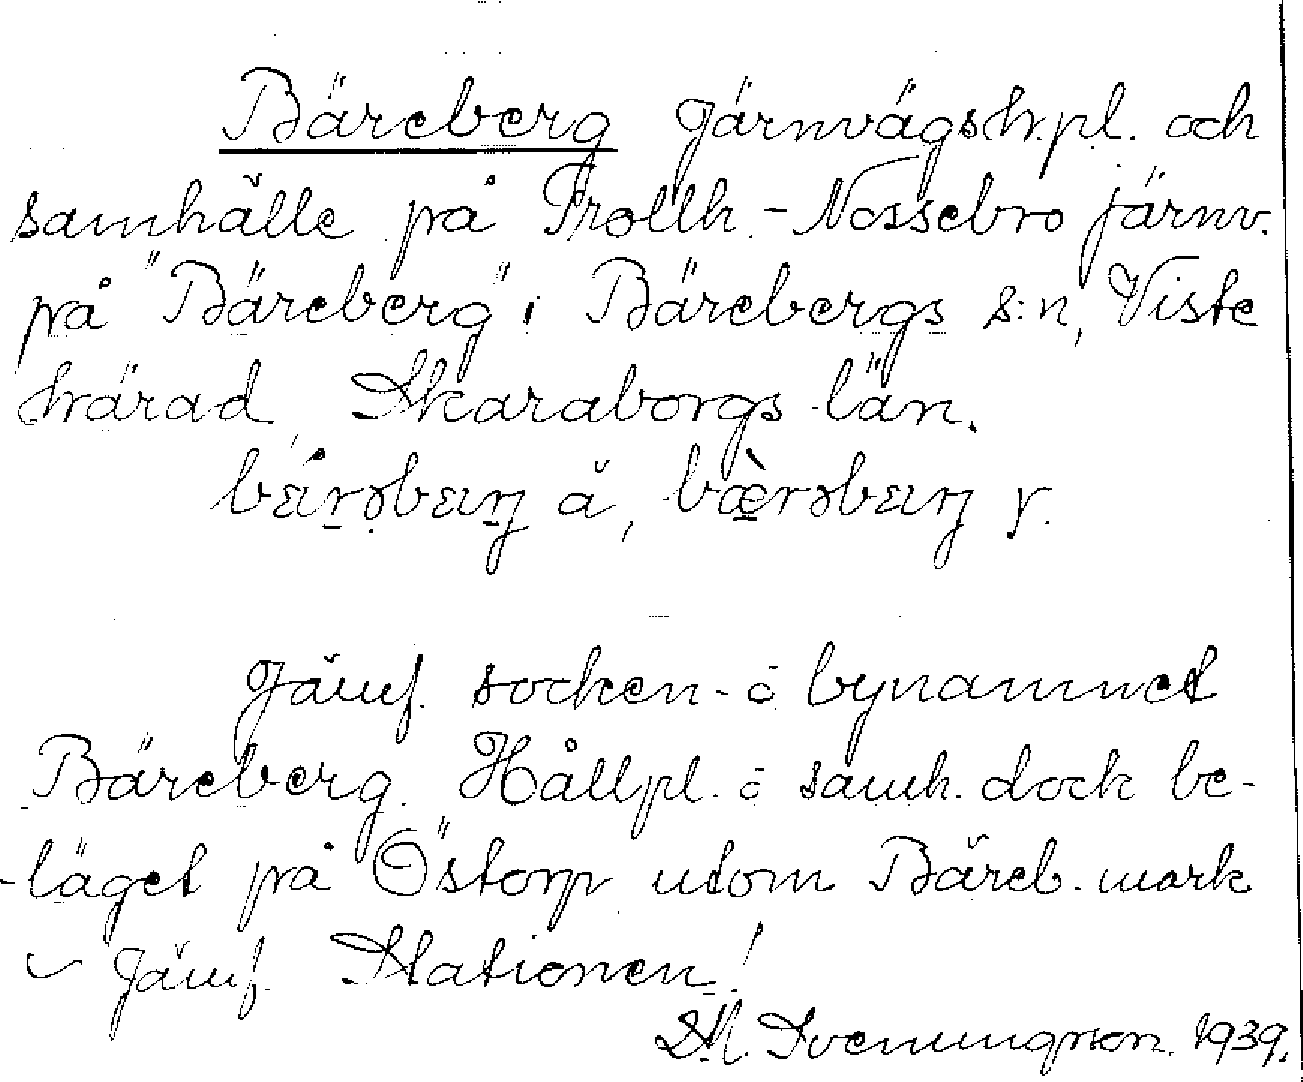 Bäreberg Järnvägshpl. och
samhälle på Trollh.-Nossebro järnv.
på "Bäreberg" i Bärebergs s:n, Viste
härad, Skaraborgs län.
ä, y.
Jämf. socken- o bynamnet
Bäreberg. Hållpl. o samh. dock be-
-läget på Östorp utom Bäreb. mark
Jämf. Stationen!
Svenungsson. 1939.